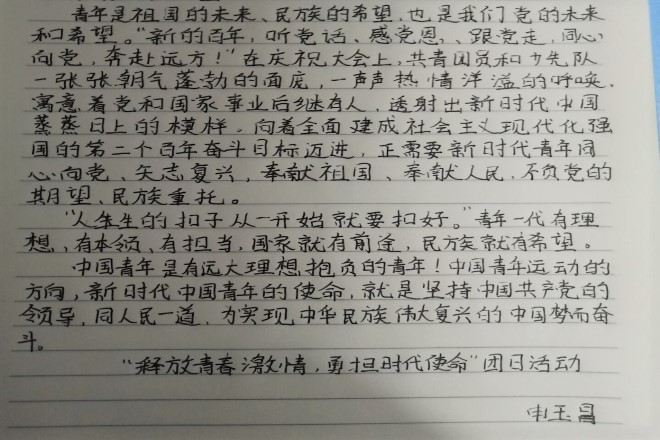 青年是祖国的未来、民族的希望，也是我们党的未来
和希望。“新的百年，听党话、感党恩、跟党走，同心
向党，奔赴远方！”在庆祝大会上，共青团员和少先队
一张张朝气蓬勃的面庞，一声声热情洋溢的呼唤，
寓意着党和国家事业后继有人，透射出新时代中国
蒸蒸日上的模样。向着全面建成社会主义现代化强
国的第二个百年奋斗目标迈进，正需要新时代青年同
心向党、矢志复兴，奉献祖国、奉献人民，不负党的
期望、民族重托。
“人生的扣子从一开始就要扣好。”青年一代有理
想、有本领、有担当，国家就有前途，民族就有希望。
中国青年是有远大理想抱负的青年！中国青年运动的
方向，新时代中国青年的使命，就是坚持中国共产党的
领导，同人民一道，为实现中华民族伟大复兴的中国梦而奋
斗。
“释放青春激情，勇担时代使命”团日活动
申玉昌